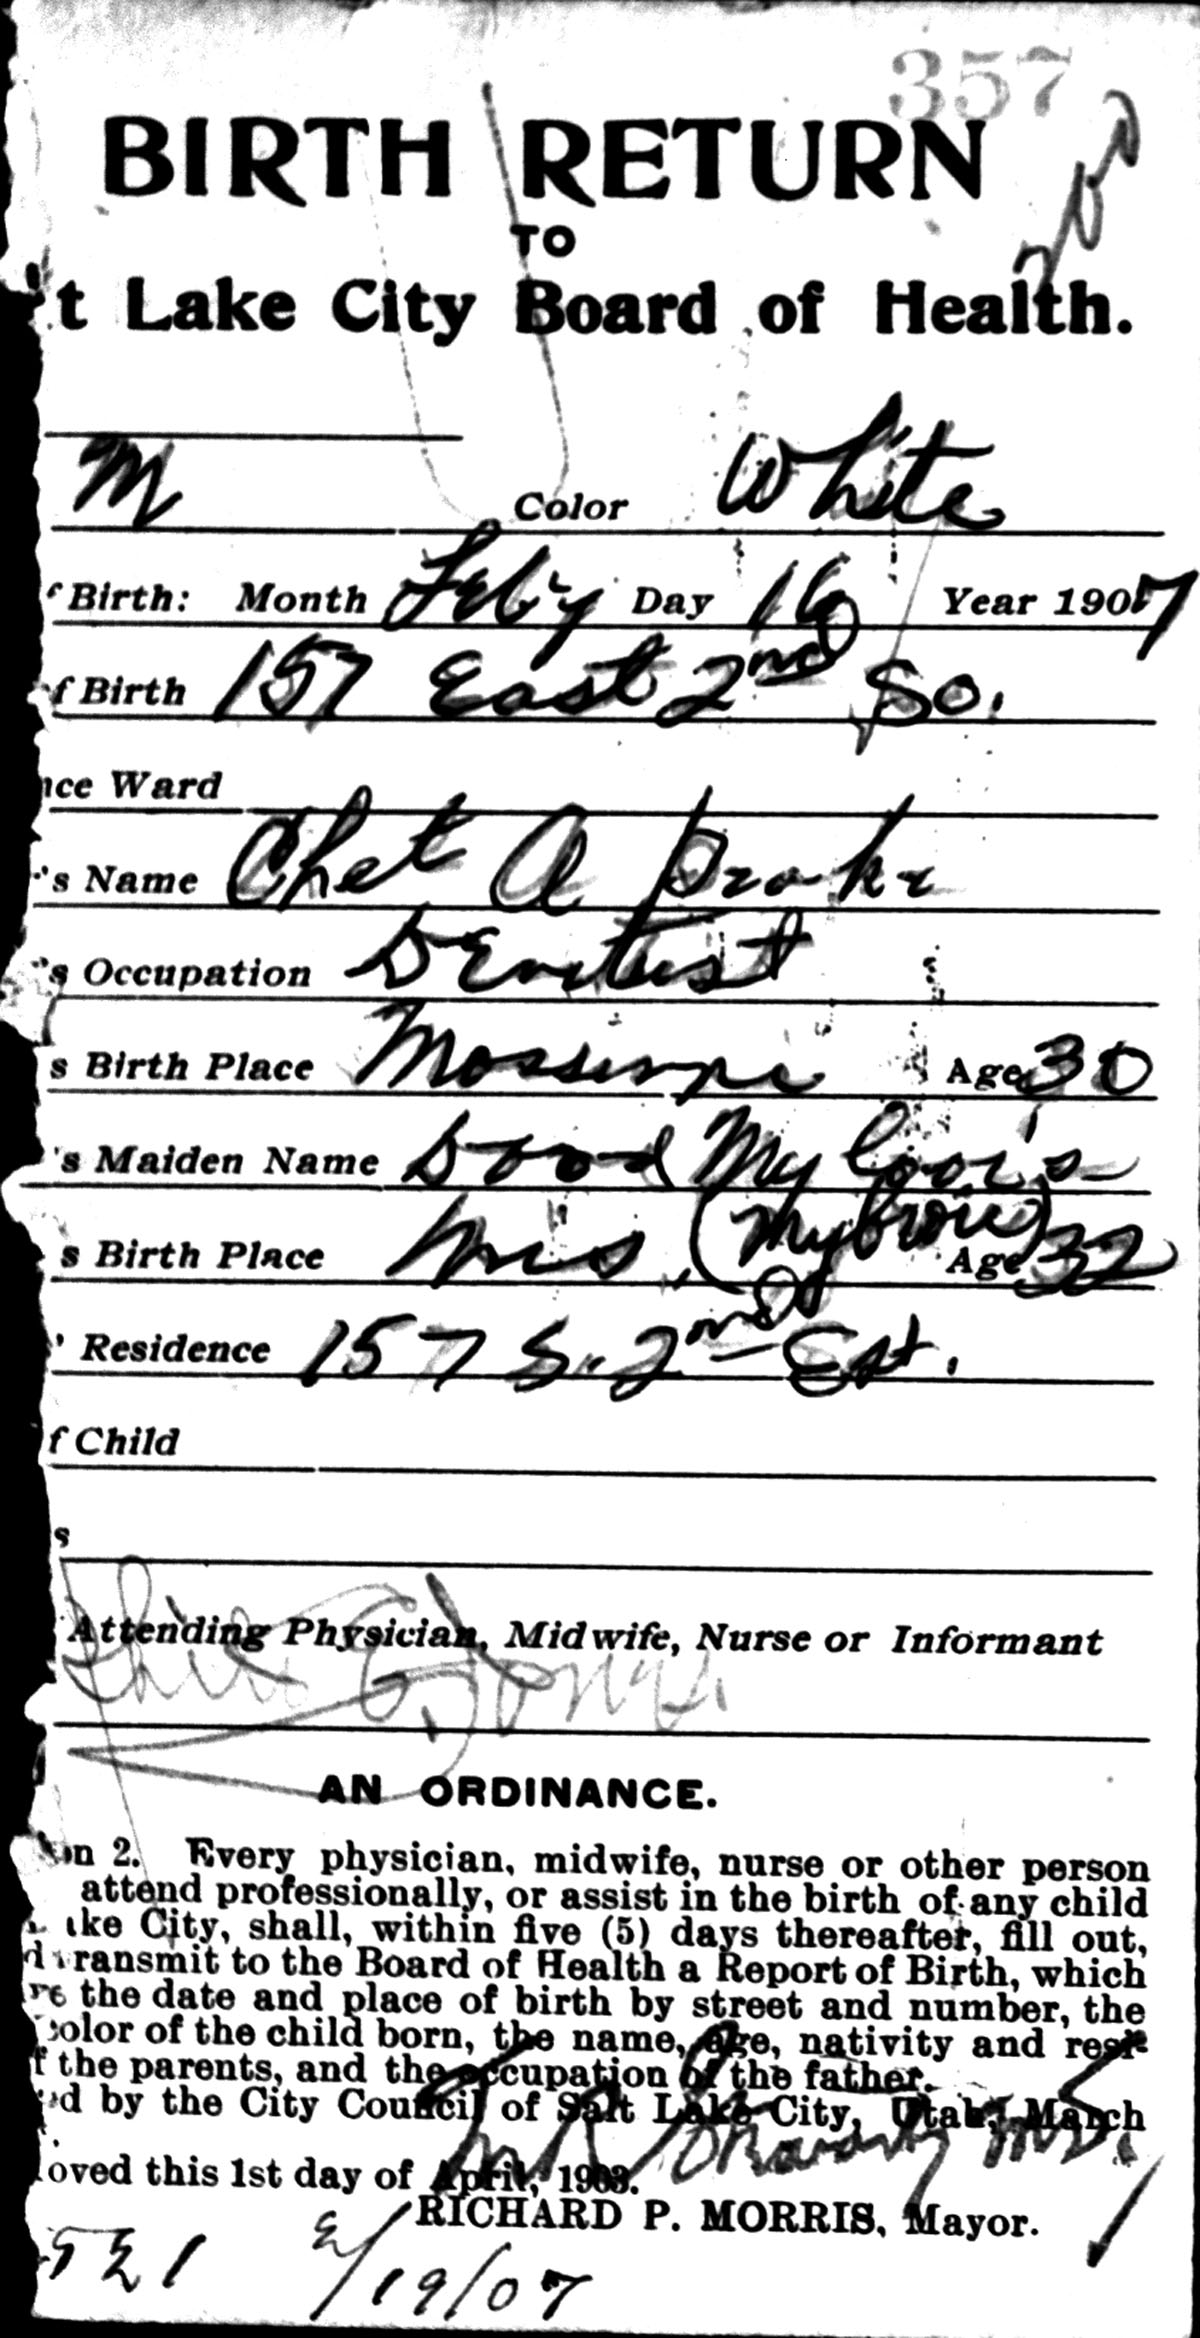 357
BIRTH RETURN
TO
t Lake City Board of Health.
M Color White
Birth: Month Feb'y Day 16 Year 1907
f Birth 157 East 2nd So.
nce Ward
's Name Chet A
's Occupation Dentist
s Birth Place Age 30
's Maiden Name
s Birth Place Mis. Age 32
Residence 157 S. 2nd Est.
f Child
s
Attending Physician, Midwife, Nurse or Informant
AN ORDINANCE.
on 2. Every physician, midwife, nurse or other person
attend professionally, or assist in the birth of any child
ake City, shall, within five (5) days thereafter, fill out,
d transmit to the Board of Health a Report of Birth, which
re the date and place of birth by street and number, the
color of the child born, the name, age, nativity and resi-
f the parents, and the occupation of the father.
ed by the City Council of Salt Lake City, Utah, March
oved this 1st day of April, 1903.
RICHARD P. MORRIS, Mayor.
521 2/19/07